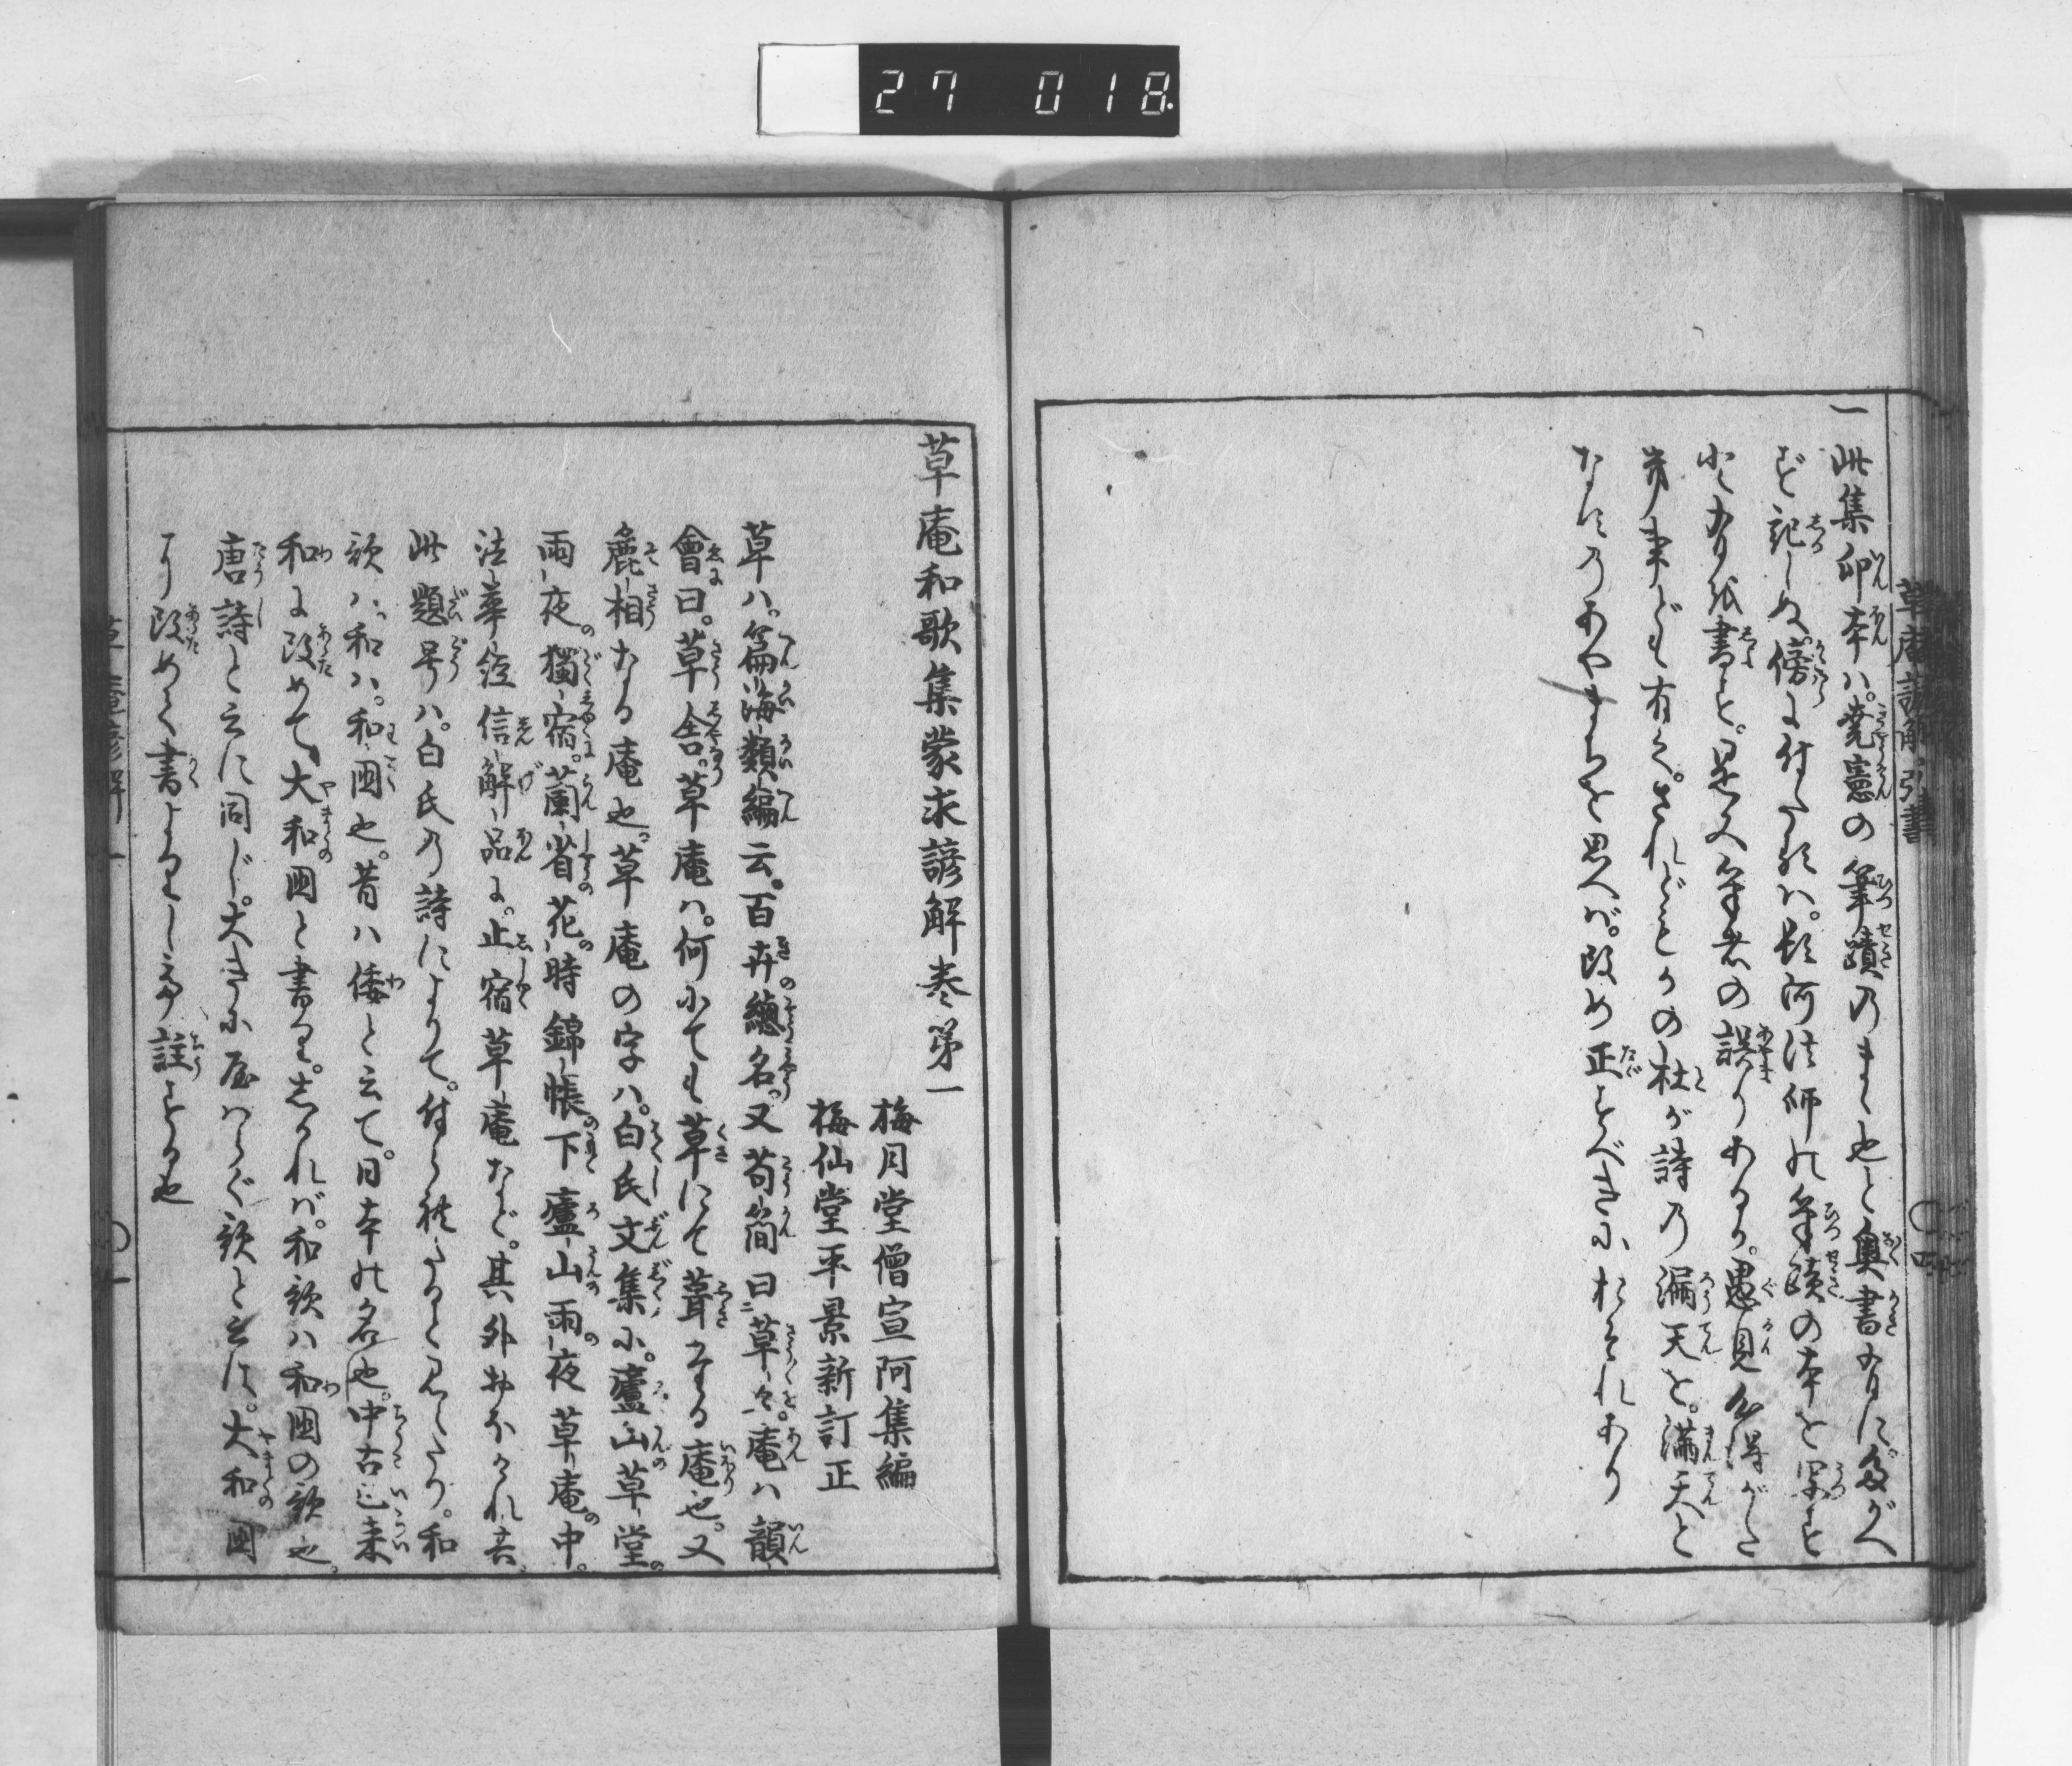 27 018
草庵諺解 引書 〇四
一此集印本ハ。堯憲の筆蹟乃まゝ也と奥書有に。多がへ
ど記しぬ。傍に付たるハ。頓阿法師の筆蹟の本を写すと
と有
事ども有べし。されどもかの杜が詩乃漏天を。満天と
なほ乃あやまちを思へば。改め正すべきにおそれあり
草庵和歌集蒙求諺解巻第一
梅月堂僧宣阿集編
梅仙堂平景新訂正
草ハ。篇海類編云。百卉總名。又荀簡曰草々。庵ハ韻
會曰。草舎。草庵ハ。何にても草にて葺たる庵也。又
麁相なる庵也。草庵の字ハ。白氏文集に。廬山草堂
雨夜獨宿。蘭省花時錦帳下廬山雨夜草庵中。
法華經信解品に。止宿草庵など。其外おほけれ共。
此題号ハ。白氏乃詩によりて。付られたると見えたり。和
歌ハ。和ハ。和国也。昔ハ倭と云て。日本の名也。中古已来
和に改めて、大和国と書り。しかれバ。和歌ハ和国の歌也。
唐詩と云に同じ。大きに和ハらぐ歌と云は。大和国
より改めて書よりし事註する也
草庵諺解一 〇一